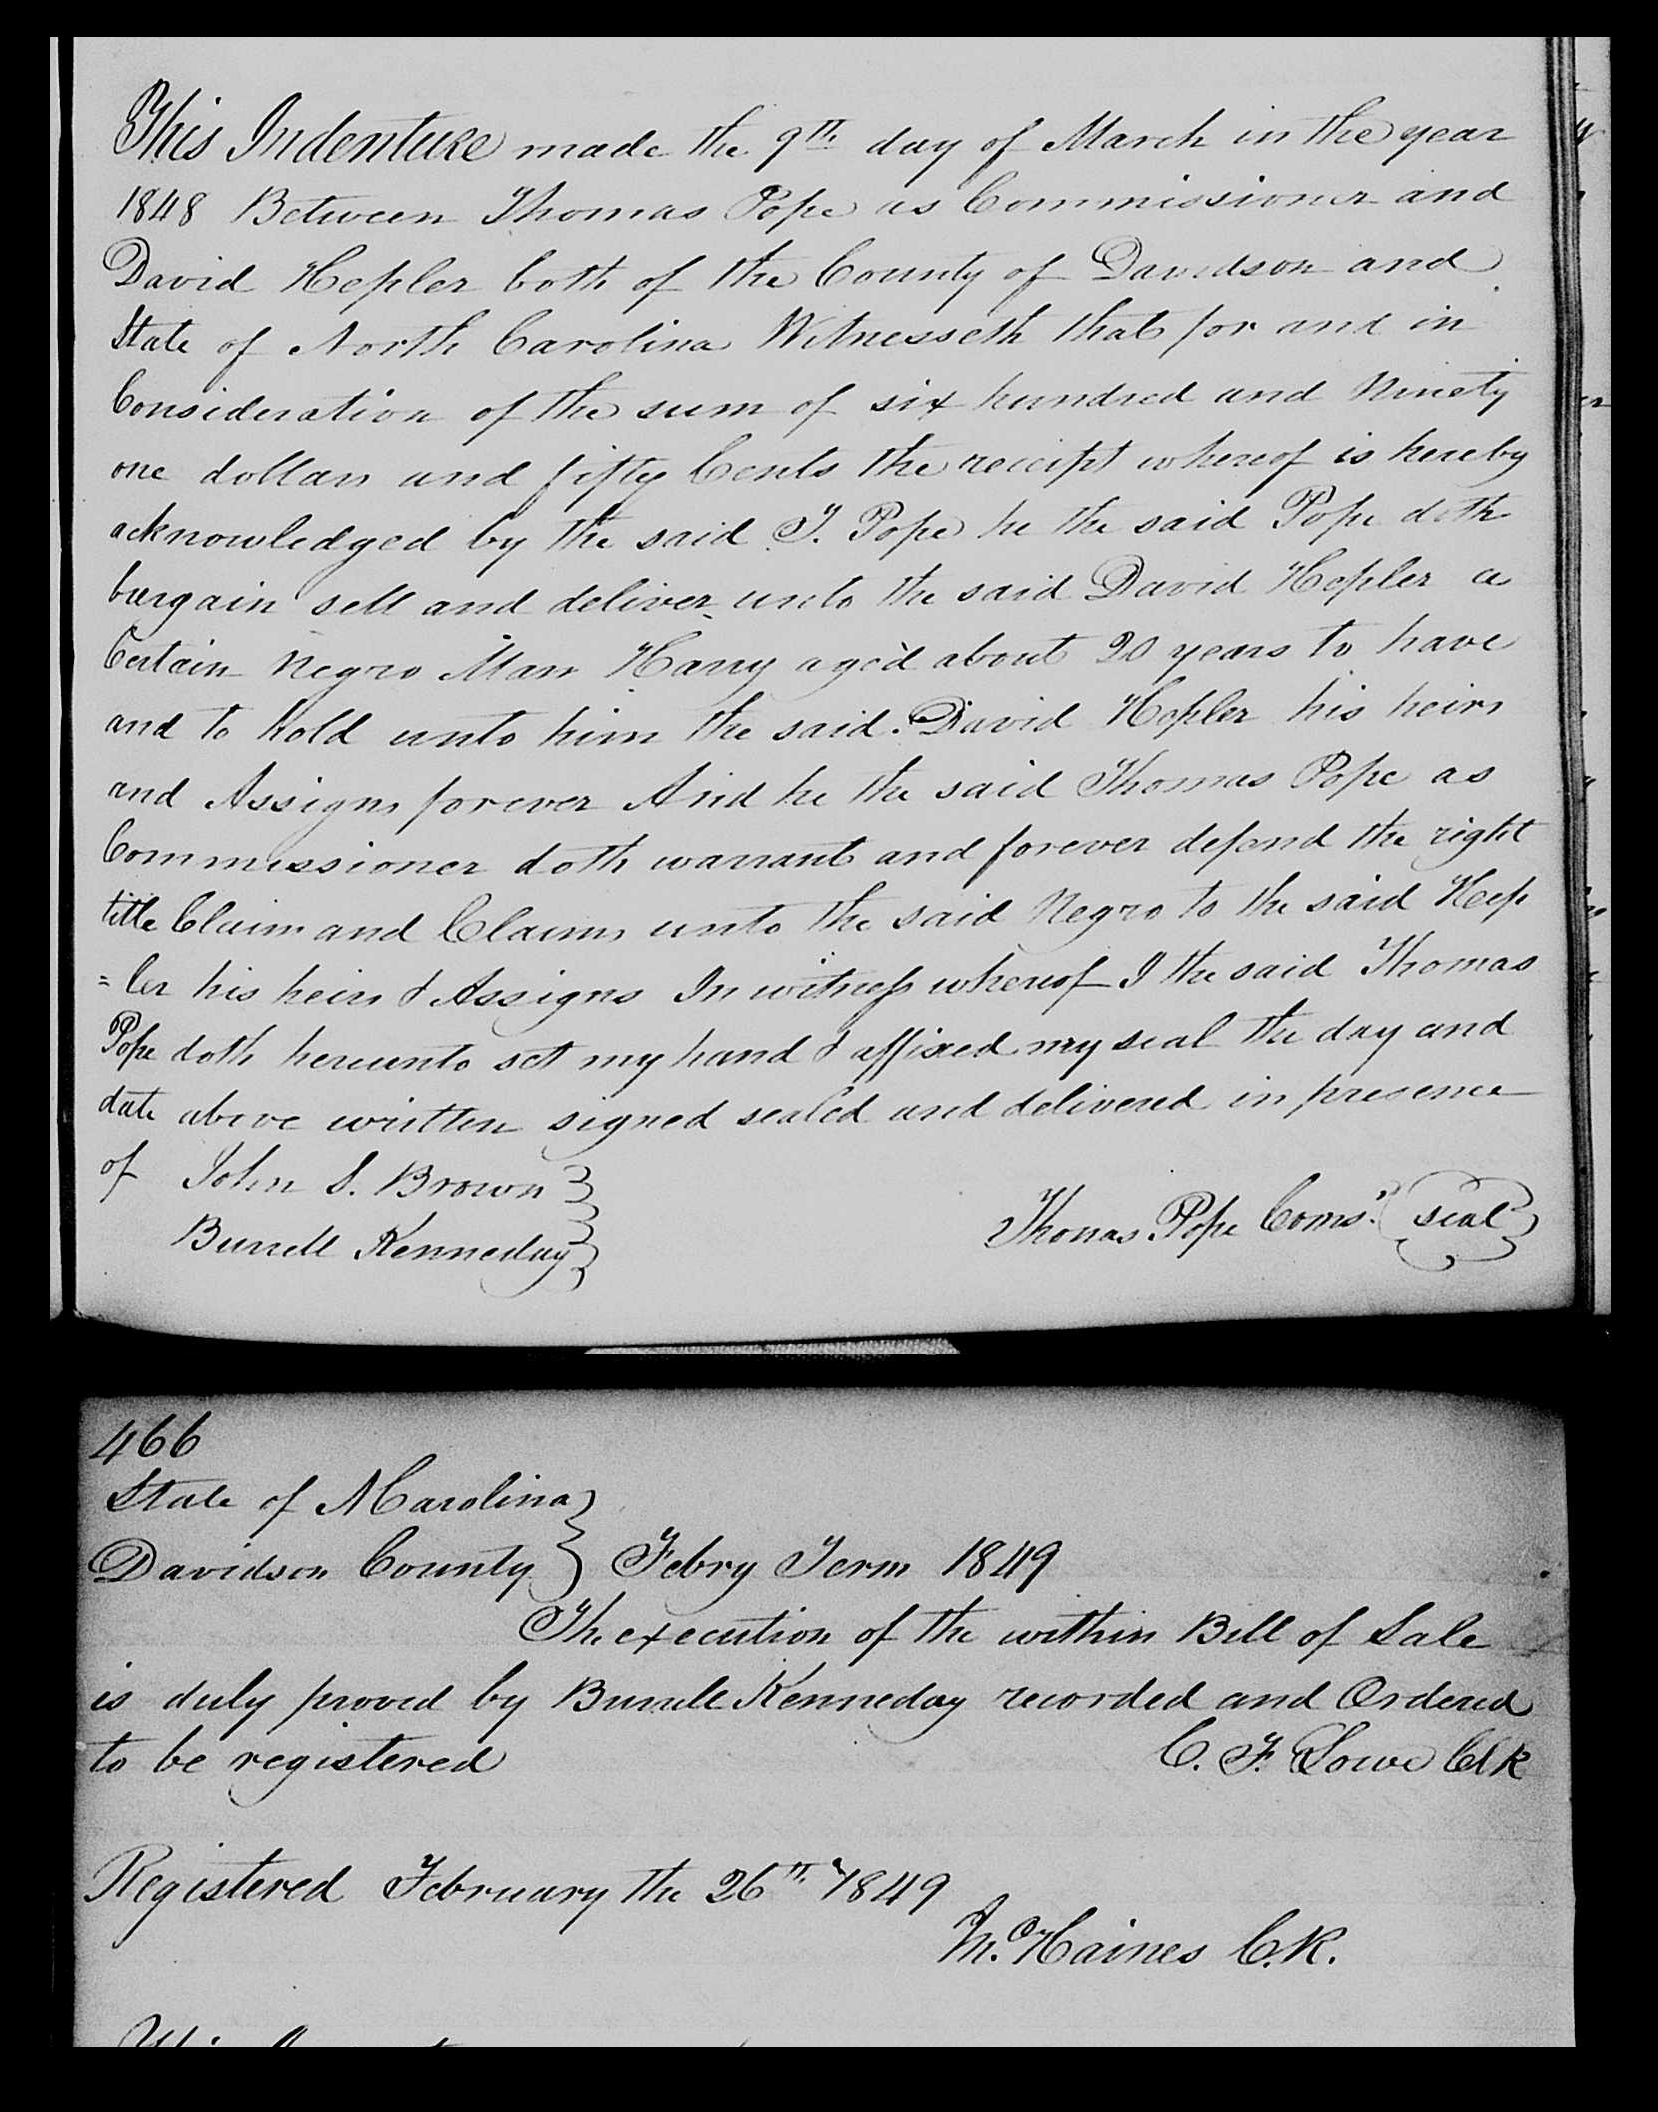 This Indenture made the 9th day of March in the year
1848 Between Thomas Pope as Commissioner and
David Hepler both of the County of Davidson and
State of North Carolina Witnesseth that for and in
Consideration of the sum of six hundred and Ninety
one dollars and fifty Cents the receipt whereof is hereby
acknowledged by the said T. Pope he the said Pope doth
bargain sell and deliver unto the said David Hepler a
Certain Negro Man Harry aged about 20 years to have
and to hold unto him the said David Hepler his heirs
and Assigns forever And he the said Thomas Pope as
Commissioner doth warrant and forever defend the right
title Claim and Claims unto the said Negro to the said Hep
=ler his heirs & Assigns In witness whereof I the said Thomas
Pope doth hereunto set my hand & affixed my seal the day and
date above written signed sealed and delivered in presence
of John S. Brown
Burrell Kenneday
Thomas Pope Comr. seal
466
State of N Carolina
Davidson County Febry Term 1849
The execution of the within Bill of Sale
is duly proved by Burrell Kenneday recorded and Ordered
to be registered C. F. Lowe Clk
Registered February the 26th 1849
M. Haines C.R.